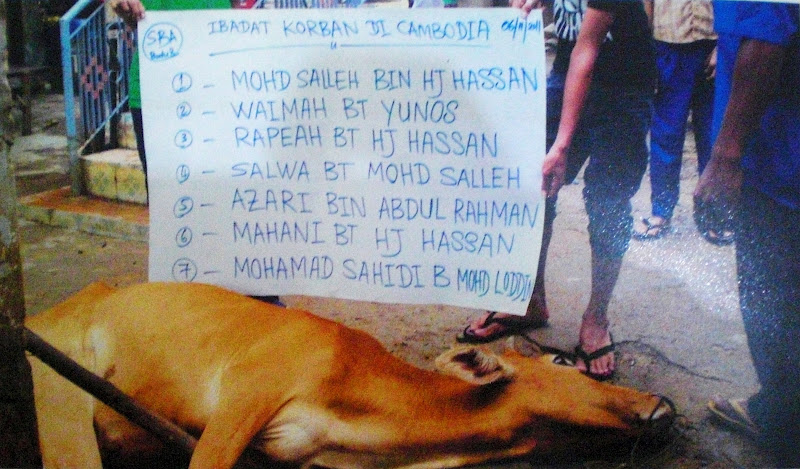 SBA
IBADAT KORBAN DI CAMBODIA
1 - MOHD SALLEH BIN HJ HASSAN
2 - WAIMAH BT YUNOS
3 - RAPEAH BT HJ HASSAN
4 - SALWA BT MOHD SALLEH
5 - AZARI BIN ABDUL RAHMAN
6 - MAHANI BT HJ HASSAN
7 - MOHAMAD SAHIDI B MOHD LODDIN